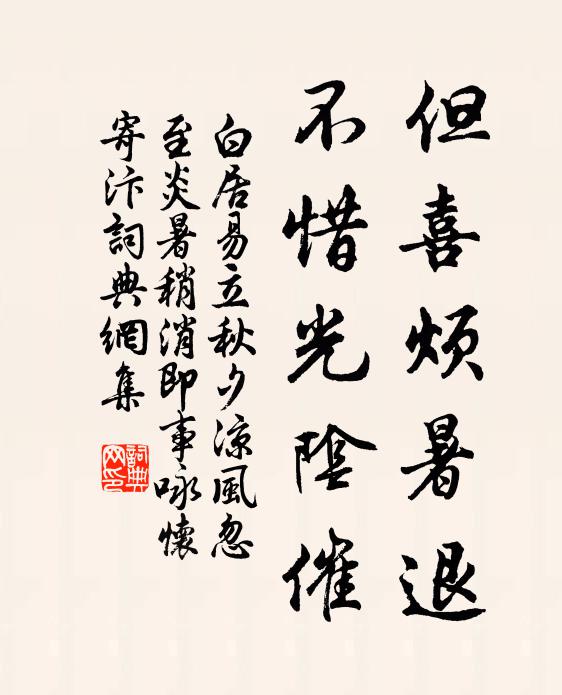 但喜烦暑退
不惜光陰催
白居易立秋夕涼風忽
至炎暑稍消即事咏懷
寄汴詞典網集
詞典
网印